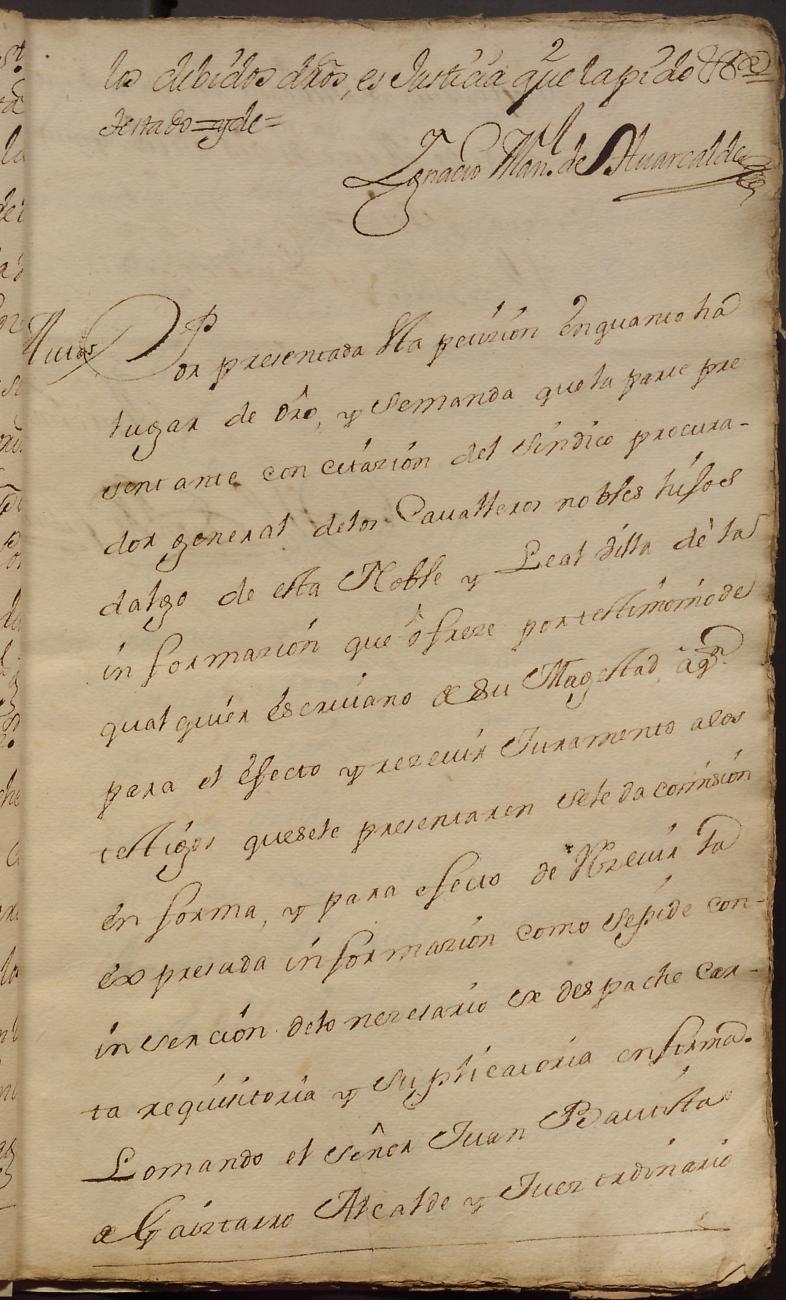 los debidos dr̃os, es Justicia que la pido &c
testado=y de=
Ignacio Man.l de
Autos
Por presentada esta petizión en quanto ha
lugar de dr̃o, y se manda que la parte pre
sentante con citazión del síndico procura-
dor general delos Cavalleros nobles hijos
dalgo de esta Noble y Leal Villa dé la
informazión que ôfreze por testimonio de
qualquier escrivano de Su Magestad, â q.n
para el efecto y rezevir Juramento alos
testigos quesele presentaren sele da comisión
en forma, y para efecto de Rezevir la
expresada informazión como sepide con-
inserción delo nezesario se despache car-
ta requisitoria y suplicatoria en forma.
Lomando el señor Juan Bautista
de Gaiztarro Alcalde y Juez ordinario